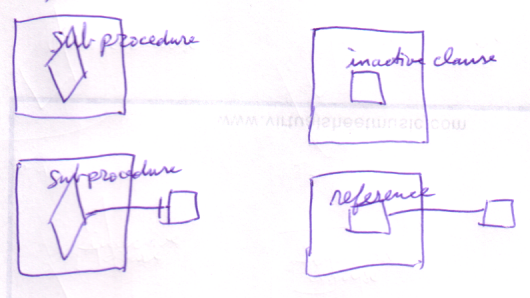 sub-procedure
inactive clause
www.virtualsheetmusic.com
subprocedure
reference